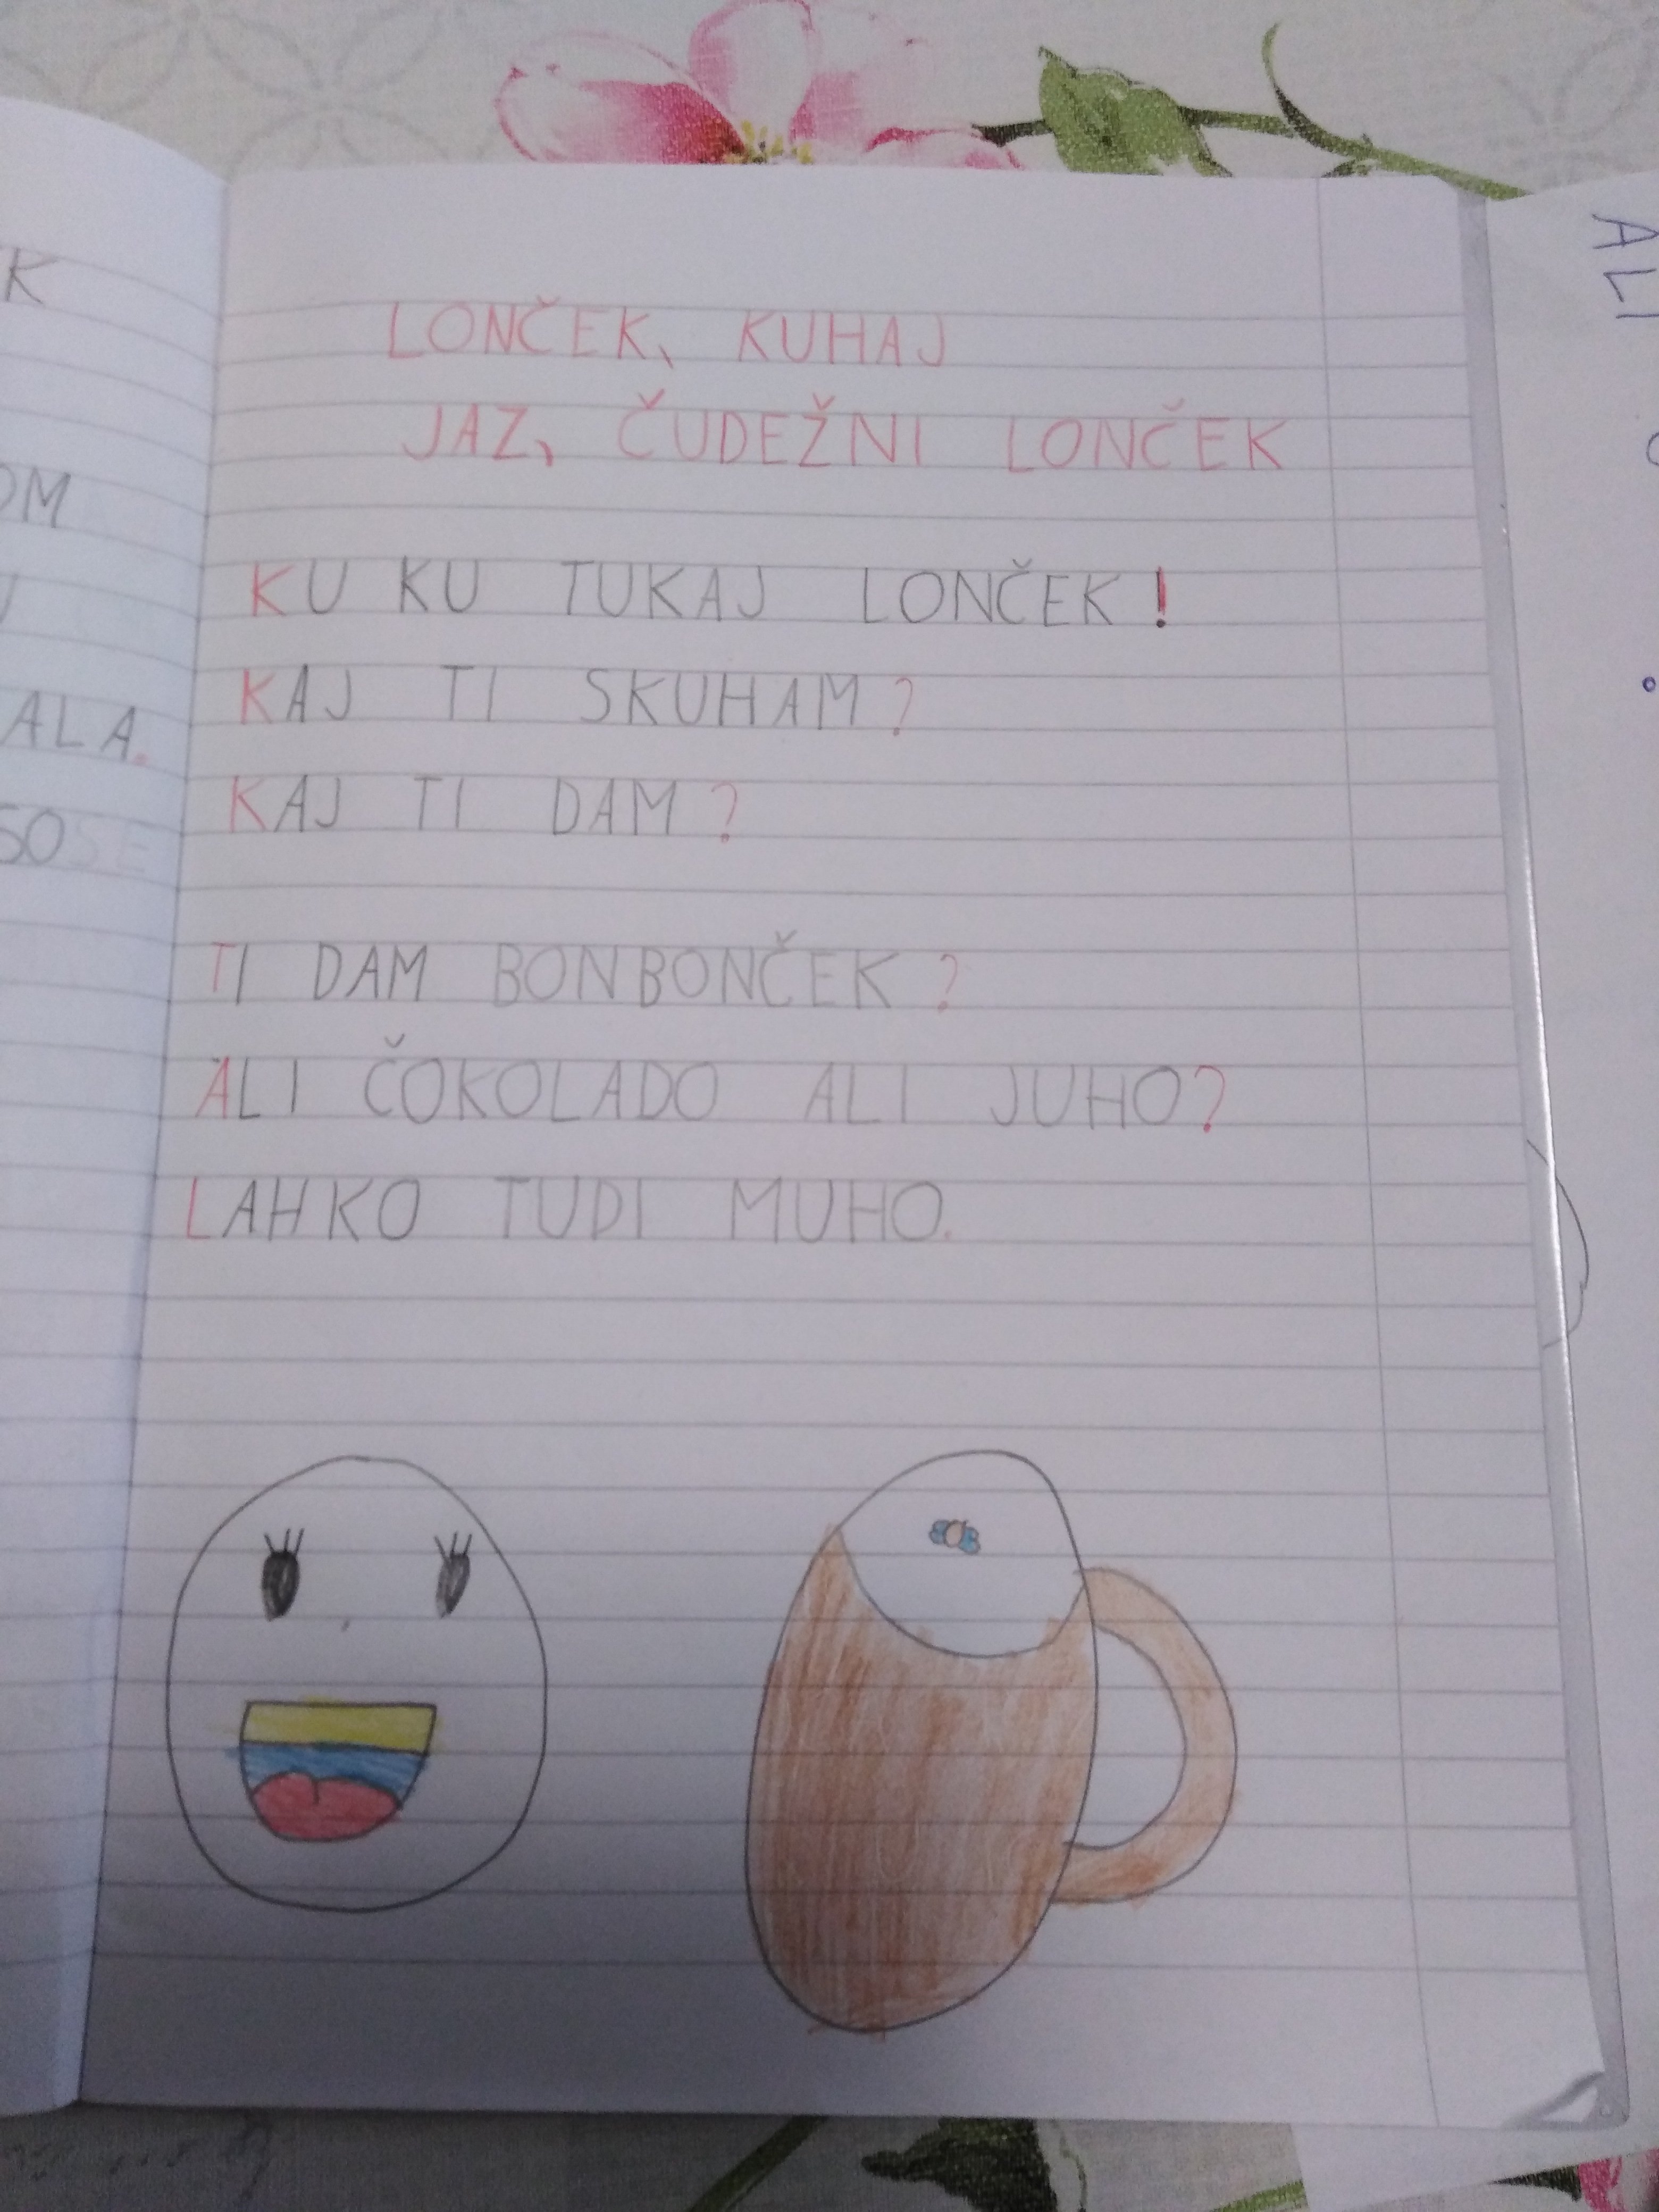 LONČEK, KUHAJ
JAZ, ČUDEŽNI LONČEK
KU KU TUKAJ LONČEK!
KAJ TI SKUHAM?
KAJ TI DAM?
TI DAM BONBONČEK?
ALI ČOKOLADO ALI JUHO?
LAHKO TUDI MUHO.
ALI